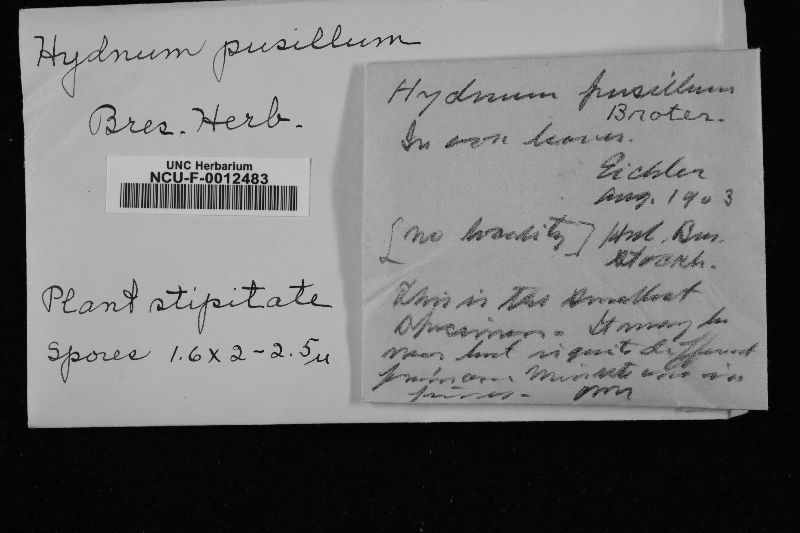 Hydnum pusillum
Bres. Herb.
UNC Herbarium
NCU-F-0012483
Plant stipitate
Spores 1.6 x 2 - 2.5 µ
Hydnum pusillum
Broter.
In leaves.
Eichler
Aug. 1903
[no locality] Herb. Bres.
Stockh.
This is the smallest
specimen. It may be
near but is quite different
from our minute one in